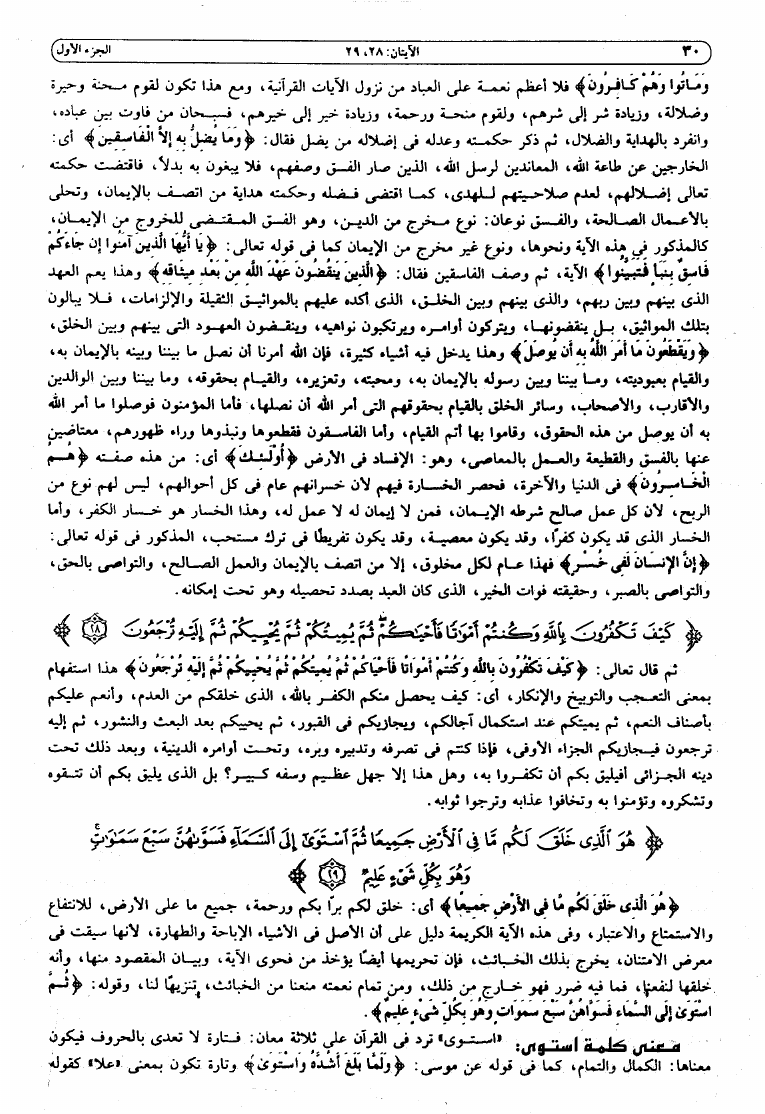 ٣٠ الآيتان: ٢٨، ٢٩ الجزء الأول
وَمَاتُوا وَهُمْ كَافِرُونَ﴾ فلا أعظم نعمة على العباد من نزول الآيات القرآنية، ومع هذا تكون لقوم محنة وحيرة
وضلالة، وزيادة شر إلى شرهم، ولقوم منحة ورحمة، وزيادة خير إلى خيرهم، فسبحان من فاوت بين عباده،
وانفرد بالهداية والضلال، ثم ذكر حكمته وعدله فى إضلاله من يضل فقال: ﴿وَمَا يُضِلُّ بِهِ إِلاَّ الْفَاسِقِينَ﴾ أى:
الخارجين عن طاعة الله، المعاندين لرسل الله، الذين صار الفسق وصفهم، فلا يبغون به بدلاً، فاقتضت حكمته
تعالى إضلالهم، لعدم صلاحيتهم للهدى، كما اقتضى فضله وحكمته هداية من اتصف بالإيمان، وتحلى
بالأعمال الصالحة، والفسق نوعان: نوع مخرج من الدين، وهو الفسق المقتضى للخروج من الإيمان،
كالمذكور فى هذه الآية ونحوها، ونوع غير مخرج من الإيمان كما فى قوله تعالى: ﴿يَا أَيُّهَا الَّذِينَ آمَنُوا إِن جَاءَكُمْ
فَاسِقٌ بِنَبَأٍ فَتَبَيَّنُوا﴾ الآية، ثم وصف الفاسقين فقال: ﴿الَّذِينَ يَنقُضُونَ عَهْدَ اللَّهِ مِنْ بَعْدِ مِيثَاقِهِ﴾ وهذا يعم العهد
الذى بينهم وبين ربهم، والذى بينهم وبين الخلق، الذى أكده عليهم بالمواثيق الثقيلة والإلزامات، فلا يبالون
بتلك المواثيق، بل ينقضونها، ويتركون أوامره ويرتكبون نواهيه، وينقضون العهود التى بينهم وبين الخلق،
﴿وَيَقْطَعُونَ مَا أَمَرَ اللَّهُ بِهِ أَن يُوصَلَ﴾ وهذا يدخل فيه أشياء كثيرة، فإن الله أمرنا أن نصل ما بيننا وبينه بالإيمان به،
والقيام بعبوديته، وما بيننا وبين رسوله بالإيمان به، ومحبته، وتعزيره، والقيام بحقوقه، وما بيننا وبين الوالدين
والأقارب، والأصحاب، وسائر الخلق بالقيام بحقوقهم التى أمر الله أن نصلها، فأما المؤمنون فوصلوا ما أمر الله
به أن يوصل من هذه الحقوق، وقاموا بها أتم القيام، وأما الفاسقون فقطعوها ونبذوها وراء ظهورهم، معتاضين
عنها بالفسق والقطيعة والعمل بالمعاصى، وهو: الإفساد فى الأرض ﴿أُوْلَئِكَ﴾ أى: من هذه صفته ﴿هُمُ
الْخَاسِرُونَ﴾ فى الدنيا والآخرة، فحصر الخسارة فيهم لأن خسرانهم عام فى كل أحوالهم، ليس لهم نوع من
الربح، لأن كل عمل صالح شرطه الإيمان، فمن لا إيمان له لا عمل له، وهذا الخسار هو خسار الكفر، وأما
الخسار الذى قد يكون كفرًا، وقد يكون معصية، وقد يكون تفريطًا فى ترك مستحب، المذكور فى قوله تعالى:
﴿إِنَّ الإِنسَانَ لَفِي خُسْرٍ﴾ فهذا عام لكل مخلوق، إلا من اتصف بالإيمان والعمل الصالح، والتواصى بالحق،
والتواصى بالصبر، وحقيقته فوات الخير، الذى كان العبد بصدد تحصيله وهو تحت إمكانه.
﴿كَيْفَ تَكْفُرُونَ بِاللَّهِ وَكُنتُمْ أَمْوَاتًا فَأَحْيَاكُمْ ثُمَّ يُمِيتُكُمْ ثُمَّ يُحْيِيكُمْ ثُمَّ إِلَيْهِ تُرْجَعُونَ ٢٨﴾
ثم قال تعالى: ﴿كَيْفَ تَكْفُرُونَ بِاللَّهِ وَكُنتُمْ أَمْوَاتًا فَأَحْيَاكُمْ ثُمَّ يُمِيتُكُمْ ثُمَّ يُحْيِيكُمْ ثُمَّ إِلَيْهِ تُرْجَعُونَ﴾ هذا استفهام
بمعنى التعجب والتوبيخ والإنكار، أى: كيف يحصل منكم الكفر بالله، الذى خلقكم من العدم، وأنعم عليكم
بأصناف النعم، ثم يميتكم عند استكمال آجالكم، ويجازيكم فى القبور، ثم يحييكم بعد البعث والنشور، ثم إليه
ترجعون فيجازيكم الجزاء الأوفى، فإذا كنتم فى تصرفه وتدبيره وبره، وتحت أوامره الدينية، وبعد ذلك تحت
دينه الجزائى أفيليق بكم أن تكفروا به، وهل هذا إلا جهل عظيم وسفه كبير؟ بل الذى يليق بكم أن تتقوه
وتشكروه وتؤمنوا به وتخافوا عذابه وترجوا ثوابه.
﴿هُوَ الَّذِى خَلَقَ لَكُم مَّا فِى الْأَرْضِ جَمِيعًا ثُمَّ اسْتَوَىٰ إِلَى السَّمَاءِ فَسَوَّاهُنَّ سَبْعَ سَمَاوَاتٍ ۚ
وَهُوَ بِكُلِّ شَىْءٍ عَلِيمٌ ٢٩﴾
﴿هُوَ الَّذِى خَلَقَ لَكُم مَّا فِى الأَرْضِ جَمِيعًا﴾ أى: خلق لكم برًا بكم ورحمة، جميع ما على الأرض، للانتفاع
والاستمتاع والاعتبار، وفى هذه الآية الكريمة دليل على أن الأصل فى الأشياء الإباحة والطهارة، لأنها سيقت فى
معرض الامتنان، يخرج بذلك الخبائث، فإن تحريمها أيضًا يؤخذ من فحوى الآية، وبيان المقصود منها، وأنه
خلقها لنفعنا، فما فيه ضرر فهو خارج من ذلك، ومن تمام نعمته منعنا من الخبائث، تنزيهًا لنا، وقوله: ﴿ثُمَّ
اسْتَوَىٰ إِلَى السَّمَاءِ فَسَوَّاهُنَّ سَبْعَ سَمَوَاتٍ وَهُوَ بِكُلِّ شَىْءٍ عَلِيمٌ﴾.
معنى كلمة استوى: «استوى» ترد فى القرآن على ثلاثة معان: فتارة لا تعدى بالحروف فيكون
معناها: الكمال والتمام، كما فى قوله عن موسى: ﴿وَلَمَّا بَلَغَ أَشُدَّهُ وَاسْتَوَىٰ﴾ وتارة تكون بمعنى «علا» كقوله